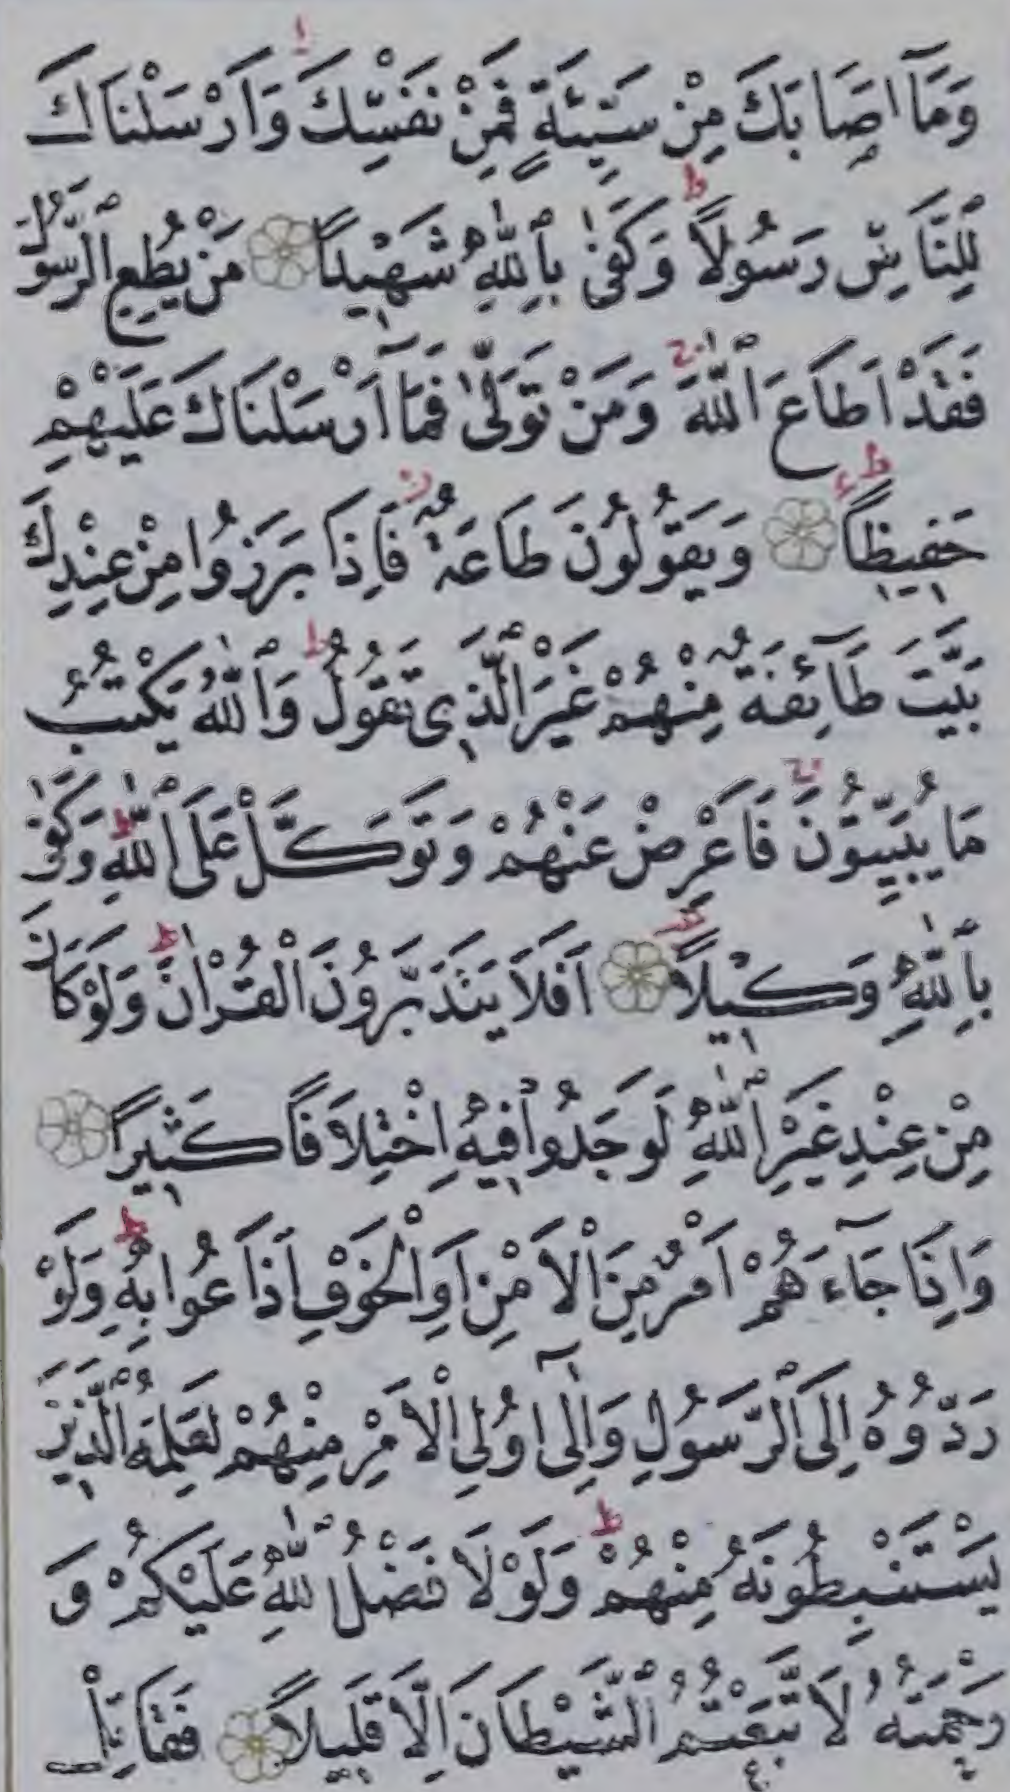 وَمَٓا اَصَابَكَ مِنْ سَيِّئَةٍ فَمِنْ نَفْسِكَ وَاَرْسَلْنَاكَ
لِلنَّاسِ رَسُولًاۜ وَكَفٰى بِاللّٰهِ شَهٖيدًا مَنْ يُطِعِ الرَّسُولَ
فَقَدْ اَطَاعَ اللّٰهَۚ وَمَنْ تَوَلّٰى فَمَٓا اَرْسَلْنَاكَ عَلَيْهِمْ
حَفٖيظًاۜ وَيَقُولُونَ طَاعَةٌۘ فَاِذَا بَرَزُوا مِنْ عِنْدِكَ
بَيَّتَ طَٓائِفَةٌ مِنْهُمْ غَيْرَ الَّذٖى تَقُولُۜ وَاللّٰهُ يَكْتُبُ
مَا يُبَيِّتُونَۚ فَاَعْرِضْ عَنْهُمْ وَتَوَكَّلْ عَلَى اللّٰهِۜ وَكَفٰى
بِاللّٰهِ وَكٖيلًا اَفَلَا يَتَدَبَّرُونَ الْقُرْاٰنَۜ وَلَوْ كَانَ
مِنْ عِنْدِ غَيْرِ اللّٰهِ لَوَجَدُوا فٖيهِ اخْتِلَافًا كَثٖيرًا
وَاِذَا جَٓاءَهُمْ اَمْرٌ مِنَ الْاَمْنِ اَوِ الْخَوْفِ اَذَاعُوا بِهٖۜ وَلَوْ
رَدُّوهُ اِلَى الرَّسُولِ وَاِلٰٓى اُولِى الْاَمْرِ مِنْهُمْ لَعَلِمَهُ الَّذٖينَ
يَسْتَنْبِطُونَهُ مِنْهُمْۜ وَلَوْلَا فَضْلُ اللّٰهِ عَلَيْكُمْ وَ
رَحْمَتُهُ لَاتَّبَعْتُمُ الشَّيْطَانَ اِلَّا قَلٖيلًا فَقَاتِلْ